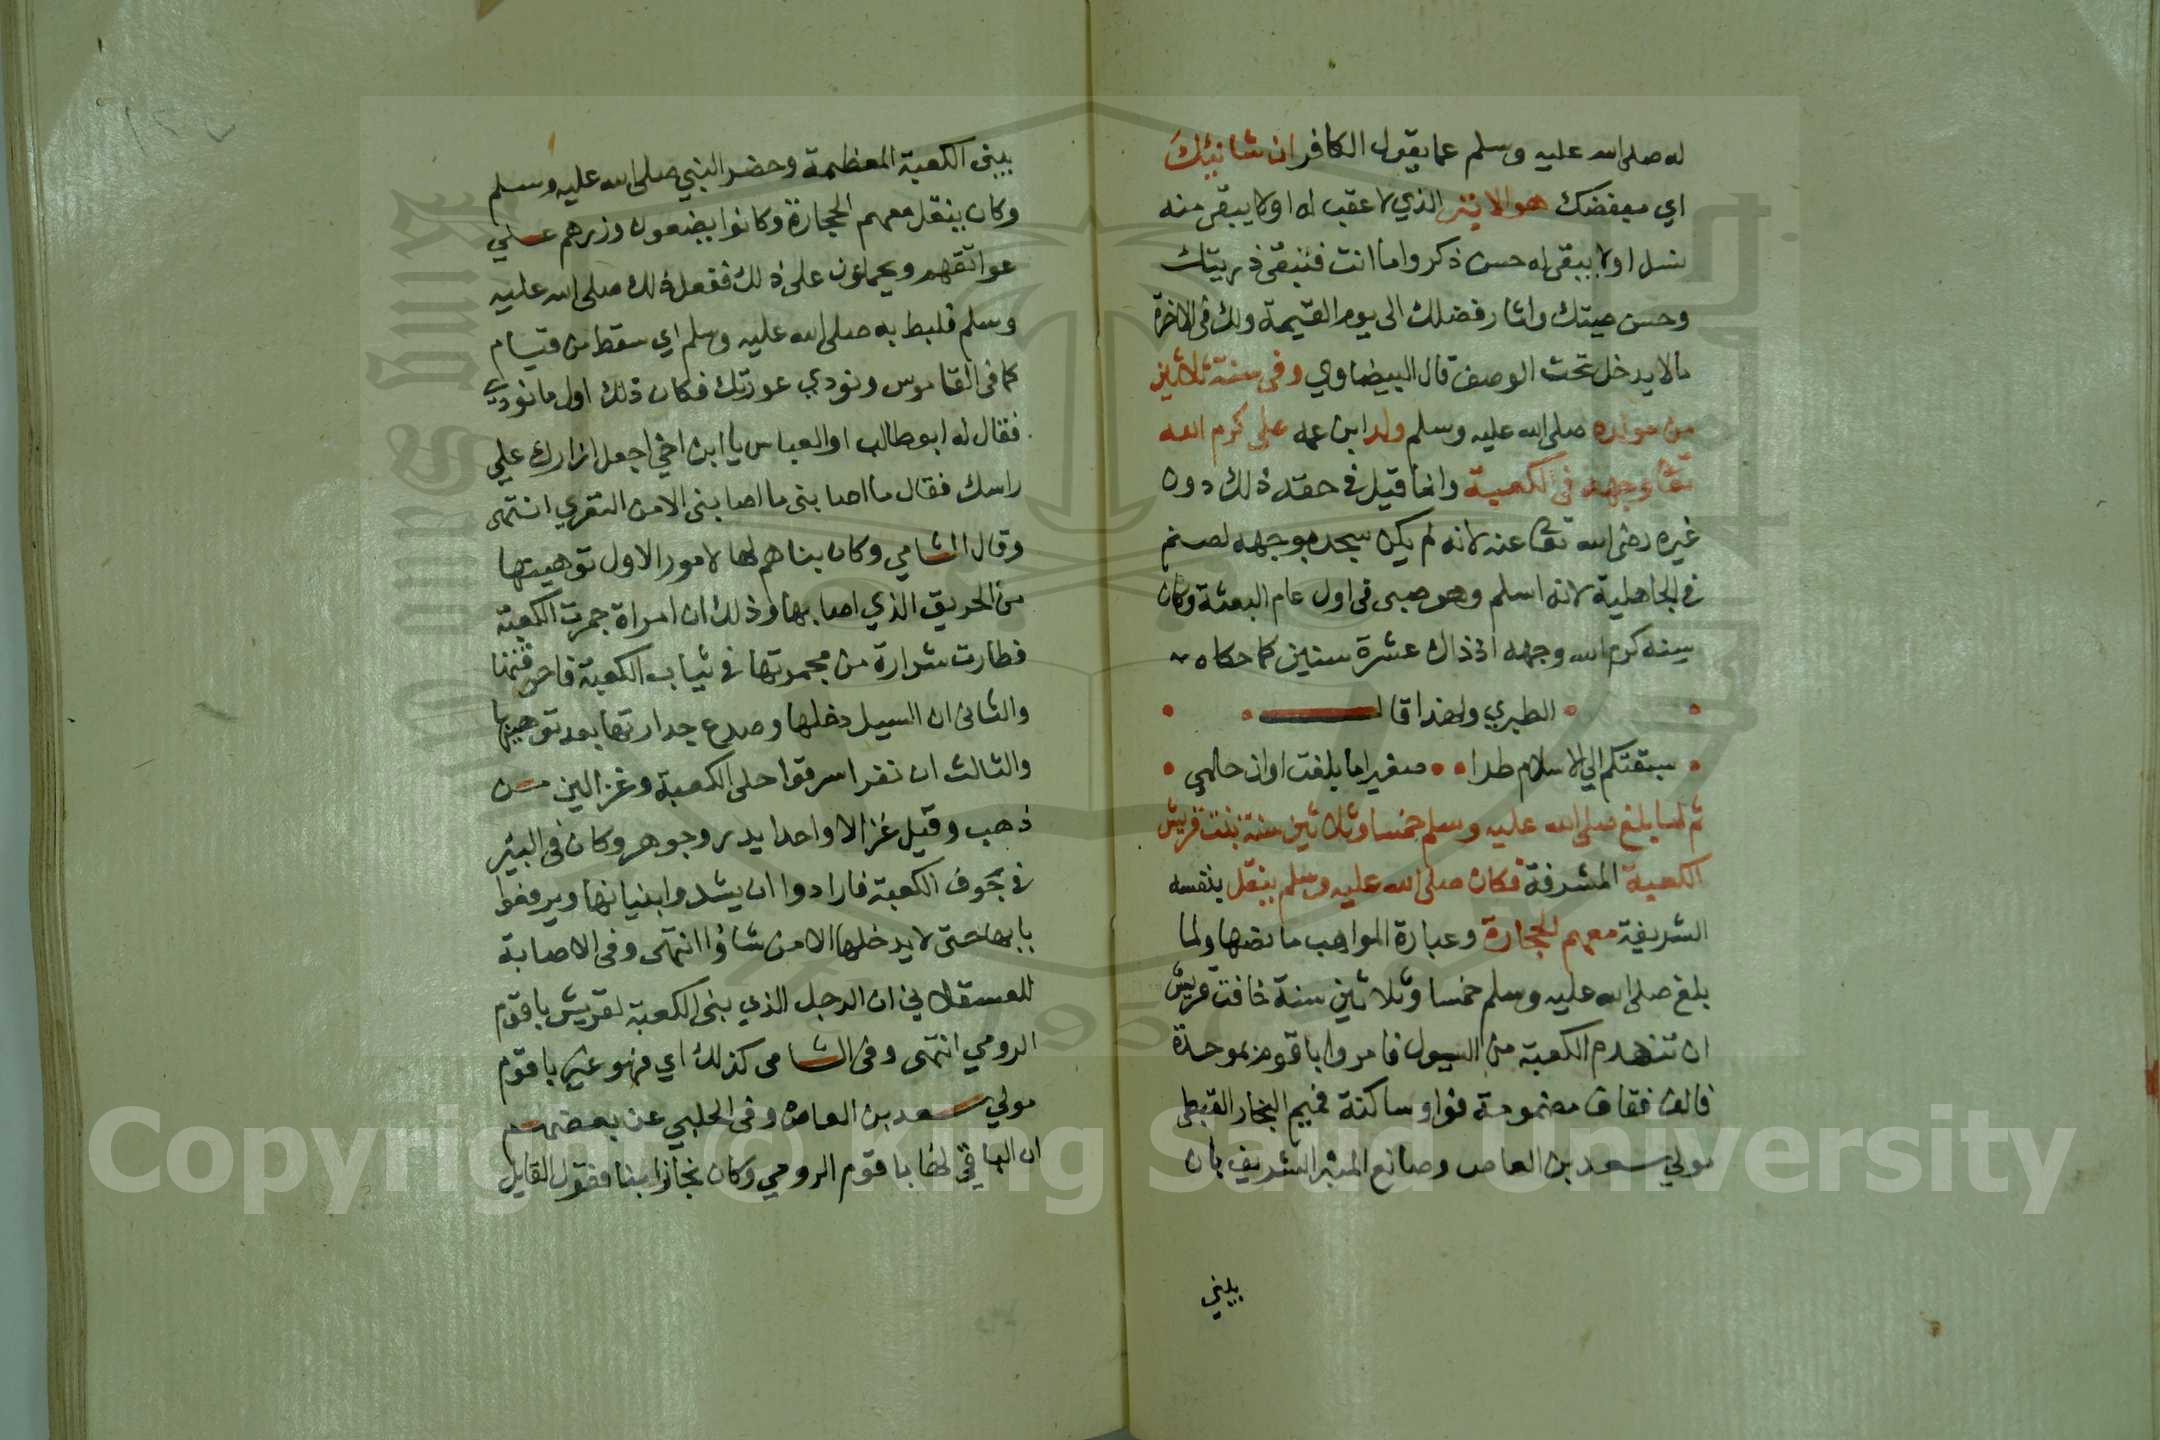 له صلى الله عليه وسلم عما يقول الكافر ان شانيك
اي مبغضك هو الابتر الذي لا عقب له اولا يبقى منه
نسل اولا يبقى له حسن ذكر واما انت فتبقى ذريتك
وحسن صيتك واثار فضلك الى يوم القيمة ولك في الاخرة
مالا يدخل تحت الوصف قال البيضاوي وفي سنة ثلاثين
من مولده صلى الله عليه وسلم ولد ابن عمه على كرم الله
تعا وجهه في الكعبة وانما قيل في حقه ذلك دون
غيره رضى الله تعا عنه لانه لم يكن سجد بوجهه لصنم
في الجاهلية لانه اسلم وهو صبى في اول عام البعثة وكان
سنه كرم الله وجهه اذ ذاك عشرة سنين كما حكاه
الطبري ولهذا قال
سبقتكم الي الاسلام طرا صغيرا ما بلغت اوان حلمي
ثم لما بلغ صلى الله عليه وسلم خمسا وثلاثين سنة بنت قريش
الكعبة المشرفة فكان صلى الله عليه وسلم ينقل بنفسه
الشريفة معهم الحجارة وعبارة المواهب ما نصها ولما
بلغ صلى الله عليه وسلم خمسا وثلاثين سنة خافت قريش
ان تنهدم الكعبة من السيول فامروا باقوم بموحدة
فالف فقاف مضمومة فواو ساكنة فميم النجار القبطي
مولي سعد بن العاص وصانع المنبر الشريف بان
يبني
يبنى الكعبة المعظمة وحضر النبي صلى الله عليه وسلم
وكان ينقل معهم الحجارة وكانوا يضعون وزرهم علي
عواتقهم ويحملون على ذلك ففعل ذلك صلى الله عليه
وسلم فلبط به صلى الله عليه وسلم اي سقط من قيام
كما في القاموس ونودي عورتك فكان ذلك اول ما نودي
فقال له ابو طالب او العباس يا ابن اخي اجعل ازارك علي
راسك فقال ما اصابنى ما اصابنى الا من التعري انتهى
وقال الشامي وكان بناهم لها لامور الاول توهينها
من الحريق الذي اصابها وذلك ان امراة جمرت الكعبة
فطارت شرارة من مجمرتها في ثياب الكعبة فاحرقتها
والثاني ان السيل دخلها وصدع جدارتها بعد توهينها
والثالث ان نفرا سرقوا حلى الكعبة وغزالين من
ذهب وقيل غزالا واحدا بدر وجوهر وكان في البير
في جوف الكعبة فارادوا ان يشدوا بنيانها ويرفعوا
بابها حتى لا يدخلها الا من شاؤا انتهى وفي الاصابة
للعسقلاني ان الرجل الذي بنى الكعبة لقريش باقوم
الرومي انتهى وفي الشامى كذلك اي فهو غير باقوم
مولي سعد بن العاص وفي الحلبي عن بعضهم
ان الباني لها باقوم الرومي وكان نجارا بنا فقول القايل
Copyright (c) King Saud University